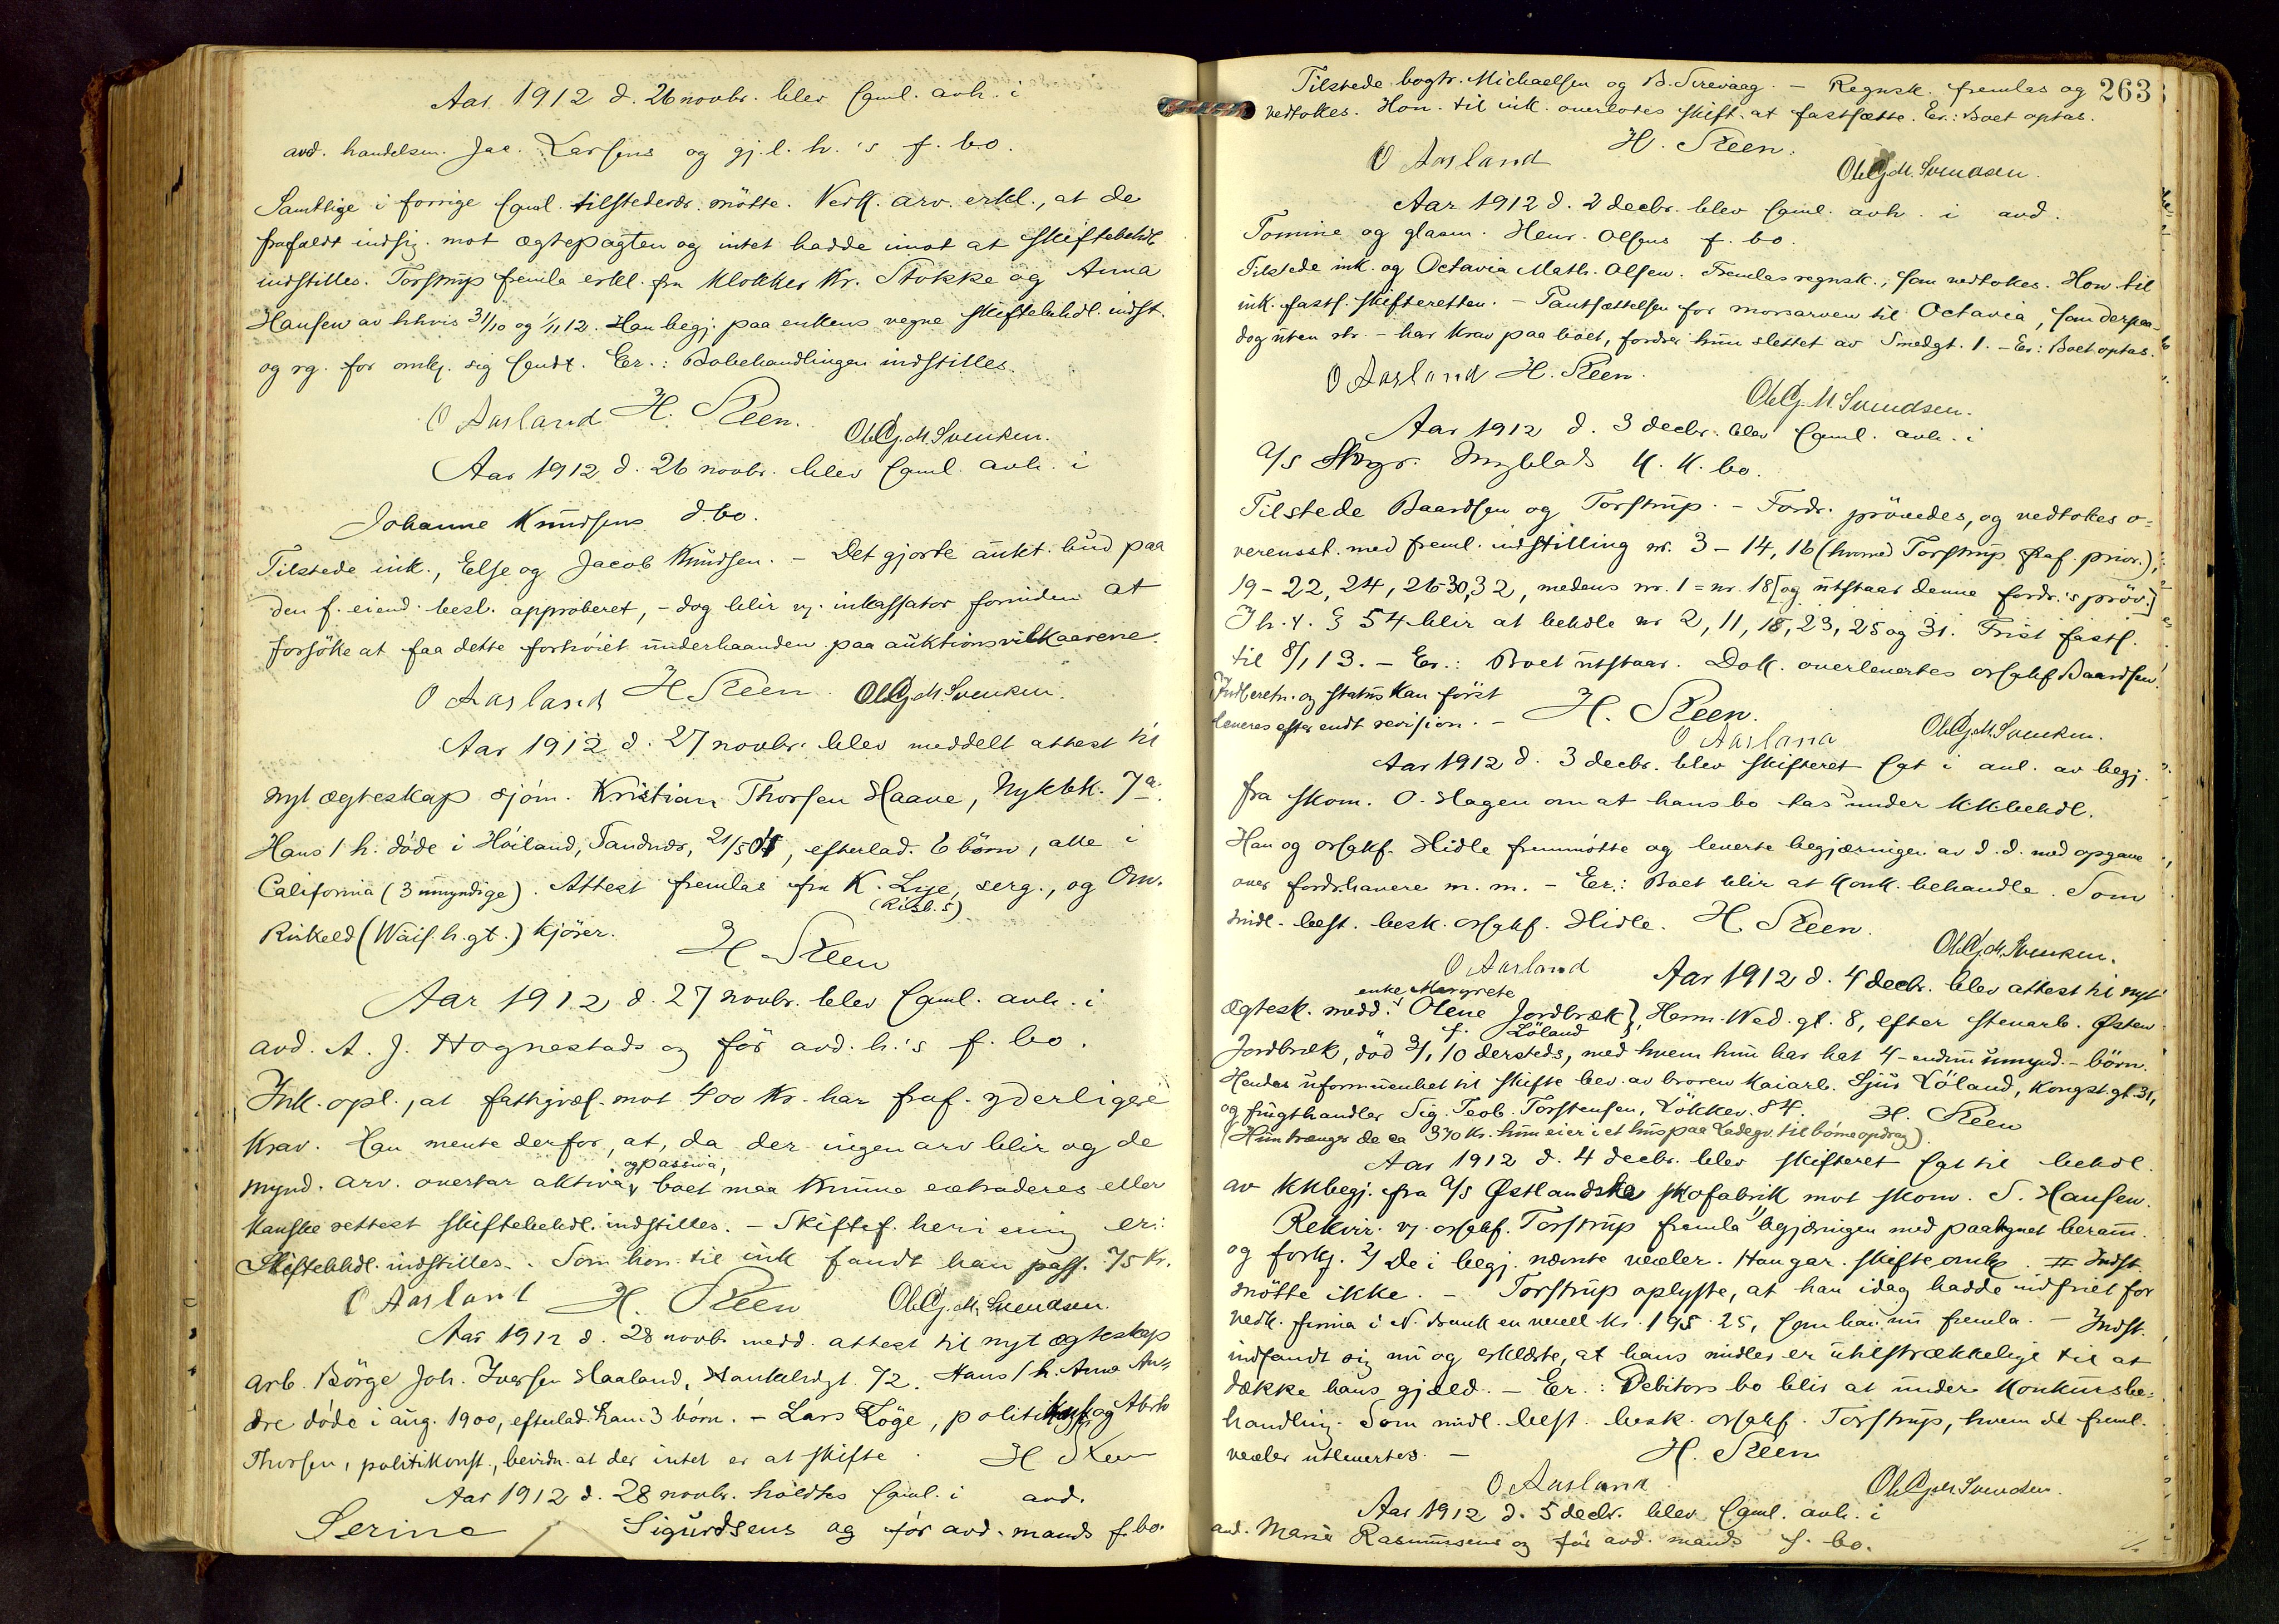 Aar 1912 d. 26 novbr. blev saml. avh. i
avd. handelsm. Jac. Larsens og gj.l. h.'s f. bo.
Samtlige i forrige saml. tilstedevær. mötte. Vedk. arv. erkl., at de
frafaldt indsig. mot ægtepagten og intet hadde imot at skiftebehdl.
indstilles. Torstrup fremla erkl. fra klokker Kr. Stokke og Anna
Hansen av hhvis 31/10 og 1/11 12. Han begj. paa enkens vegne skiftebehdl. indst.
og rg. for omkj. sig sendt. Er.: Bobehandlingen indstilles.
O Aasland H. Steen. Ole Cj. M. Svendsen.
Aar 1912 d. 26 novbr. blev saml. avh. i
Johanne Knudsens d.bo.
Tilstede ink., Else og Jacob Knudsen. – Det gjorte aukt. bud paa
den f. eiend. besl. approberet, – dog blir vj. inkassator forinden at
forsöke at faa dette forhöiet underhaanden paa auktionsvilkaarene.
O Aasland H Steen. Ole Cj. M. Svendsen.
Aar 1912 d. 27 novbr. blev meddelt attest til
nyt ægteskap sjöm. Kristian Thorsen Haave, Nykbk. 7a.
Hans 1 h. döde i Höiland, Sandnæs, 21/5 04, efterlad. 6 börn, alle i
California (3 umyndige). Attest fremlas fra K. Lye, serg., og Om.
(Risb. 5)
Riskeld (Wais. h. gt.) kjörer.
H Steen
Aar 1912 d. 27 novbr. blev saml. avh. i
avd. A. J. Hognestads og för avd. h.'s f. bo.
Ink. opl., at fattigvæs. mot 400 kr. har fraf. yderligere
krav. Han mente derfor, at, da der ingen arv blir og de
og passiva,
mynd. arv. overtar aktiva boet maa kunne extraderes eller
kanske rettest skiftebehdl. indstilles. – Skiftef. heri enig er:
Skiftebehdl. indstilles. Som hon. til ink fandt han pass. 75 Kr.
O Aasland H. Steen Ole Cj. M. Svendsen.
Aar 1912 d. 28 novb. medd. attest til nyt ægteskap
arb. Börge Joh. Iversen Haaland, Haukeligt. 72. Hans 1 h. Anna An-
dre döde i aug. 1900, efterlad. ham 3 börn. – Lars Löge, politik. og Abrh
Thorsen, politikonst., bevidn. at der intet er at skifte. H Steen
Aar 1912 d. 28 novbr. holdtes saml. i avd.
Serine Sigurdsens og för avd. mands f. bo.
263
Tilstede bogtr. Michaelsen og B. Sirevaag. – Regnsk. fremlas og
vedtokes. Hon. til ink. overlotes skift. at fastsætte. Er.: Boet optas.
O Aasland H. Steen. Ole Cj. M. Svendsen.
Aar 1912 d. 2 decbr. blev saml. avh. i avd.
Tomine og glasm. Henr. Olsens f. bo.
Tilstede ink. og Octavia Math. Olsen. Fremlas regnsk., som vedtokes. Hon til
ink. fasts. skifteretten. – Pantsættelsen for morsarven til Octavia, som derpaa –
dog uten str. – har krav paa boet, fordrer hun slettet av Smedgt. 1. – Er: Boet optas.
O Aasland H. Steen. Ole Cj. M. Svendsen.
Aar 1912 d. 3 decbr. blev saml. avh. i
A/S Stvgr. Myblads K. K. bo.
Tilstede Baardsen og Torstrup. – Fordr. prövedes, og vedtokes o-
verensst. med freml. indstilling nr. 3 – 14, 16 (hvorved Torstrup fraf. prior.),
19 – 22, 24, 26-30, 32, medens nr. 1 = nr. 18 [og utstaar denne fordr.'s pröv.]
I h. t. § 54 blir at behdle nr 2, 11, 15, 23, 25 og 31. Frist fasts.
til 8/1 13. – Er.: Boet utstaar. Dok. overlevertes orsakf Baardsen.
Indberetn. og status kan först
leveres efter endt revision. – H. Steen.
O Aasland Ole Cj. M. Svendsen.
Aar 1912 d. 3 decbr. blev skifteret sat i anl. av begj.
fra skom. O. Hagen om at hans bo tas under KKbehdl.
Han og orsakf. Hidle fremmötte og leverte begjæringen av d. d. med opgave
over fordr.havere m. m. – Er.: Boet blir at konk. behandle. Som
midl. best. besk. orsakf. Hidle. H. Steen.
O Aasland Ole Cj. M. Svendsen.
Aar 1912 d. 4 decbr. blev attest til nyt
enke Margrete
ægtesk. medd. Olene Jordbræk, Herm. Wed. gt. 8, efter stenarb. Østen
f. Löland
Jordbræk, död 3/1 10 dersteds, med hvem hun har hat 4 – endnu umynd. – börn.
Hendes uformuenhet til skifte bev. av broren kaiarb. Sjur Löland, Kongsgt. 31,
og frugthandler Sig. Teob. Torstensen, Lökkev. 84. H. Steen
(Hun trænger de ca 370 Kr. hun eier i et hus paa Ladegv. til börneopdrag).
Aar 1912 d. 4 decbr. blev skifteret sat til behdl.
av KKbegj. fra A/S Østlandske skofabrik mot skom. S. Hansen.
Rekvir. vj. orsakf. Torstrup fremla 1) begjæringen med paategnet beram.
og forkj. 2) De i begj. nævnte vexler. Han gar. skifteomk. Indst.
mötte ikke. – Torstrup oplyste, at han idag hadde indfriet for
vedk. firma i N. Bank en vexel Kr. 195.25, som han nu fremla. – Indst.
indfandt sig nu og erklærte, at hans midler er utilstrækkelige til at
dække hans gjæld. – Er.: Debitors bo blir at under konkursbe-
handling. Som midl. best. besk. orsakf. Torstrup, hvem de freml.
vexler utlevertes. – H. Steen
O Aasland Ole Cj. M. Svendsen.
Aar 1912 d. 5 decbr. blev saml. avh. i
avd. Marie Rasmussens og för avd. mands f. bo.